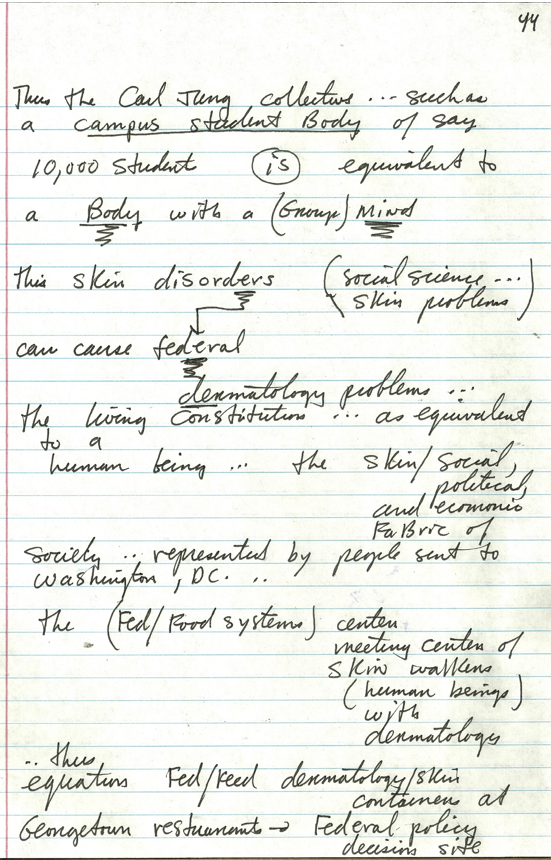 44
Thus the Carl Jung collective ... such as
a campus student Body of say
10,000 student is equivalent to
a Body with a (Group) Mind
this skin disorders (social science ...
skin problems)
can cause federal
dermatology problems ...
the living Constitution ... as equivalent
to a
human being ... the skin/social,
political,
and economic
FaBric of
society .. represented by people sent to
Washington, DC. ..
the (Fed/Food systems) center
meeting center of
skin walkers
(human beings)
with
dermatology
.. thus
equation Fed/Feed dermatology/skin
containers at
Georgetown restuarants → Federal policy
decision site